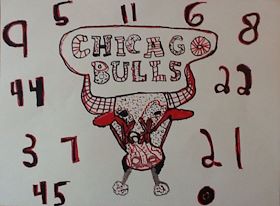 5 11 6
9 8
CHICAGO
BULLS
44 22
3 7 21
45 0